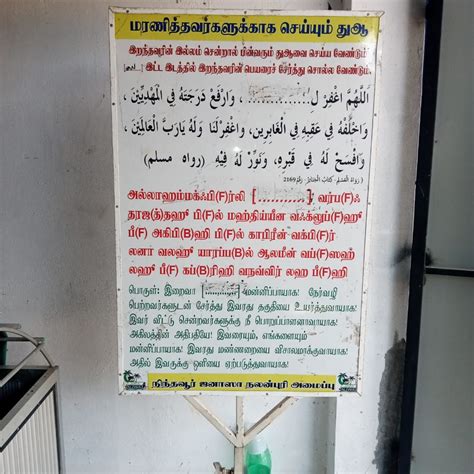 மரணித்தவர்களுக்காக செய்யும் துஆ
இறந்தவரின் இல்லம் சென்றால் பின்வரும் துஆவை செய்ய வேண்டும்
இட்ட இடத்தில் இறந்தவரின் பெயரைச் சேர்த்து சொல்ல வேண்டும்.
اَللّٰهُمَّ اغْفِرْ ل............ ، وَارْفَعْ دَرَجَتَهُ فِي الْمَهْدِيِّيْنَ ،
وَاخْلُفْهُ فِي عَقِبِهِ فِي الْغَابِرِين، وَاغْفِرْلَنَا وَلَهُ يَارَبَّ الْعَالَمِيْنَ ،
وَافْسَحْ لَهُ فِي قَبْرِهِ، وَنَوِّرْ لَهُ فِيْهِ (رواه مسلم)
அல்லாஹும்மக்ஃபி(F)ர்லி [..........] வர்ப(F)ஃ
தரஜ(த்)தஹூ பி(F)ல் மஹ்திய்யீன வஃக்லுப்(F)ஹூ
பீ(F) அகிபி(B)ஹி பி(F)ல் காபிரீன்-வக்பி(F)ர்
லனா வலஹூ யாரப்ப(B)ல் ஆலமீன் வப்(F)ஸஹ்
லஹூ பீ(F) கப்(B)ரிஹி வநவ்விர் லஹ பீ(F)ஹி
பொருள்: இறைவா [..........] மன்னிப்பாயாக! நேர்வழி
பெற்றவர்களுடன் சேர்த்து இவரது தகுதியை உயர்த்துவாயாக!
இவர் விட்டு சென்றவர்களுக்கு நீ பொறுப்பானனாவாயாக!
அகிலத்தின் அதிபதியே! இவரையும், எங்களையும்
மன்னிப்பாயாக! இவரது மண்ணறையை விசாலமாக்குவாயாக!
அதில் இவருக்கு ஒளியை ஏற்படுத்துவாயாக!
நிந்தவூர் ஜனாஸா நலன்புரி அமைப்பு